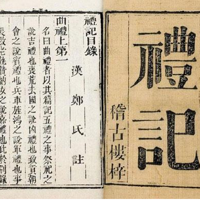 禮記
稽古樓梓
禮記目錄
漢鄭氏註
曲禮上第一
名曰曲禮者以其篇記五禮之事祭祀之
說吉禮也喪荒去國之說凶禮也致貢朝
會之說賓禮也兵車旌鴻之說軍禮也事